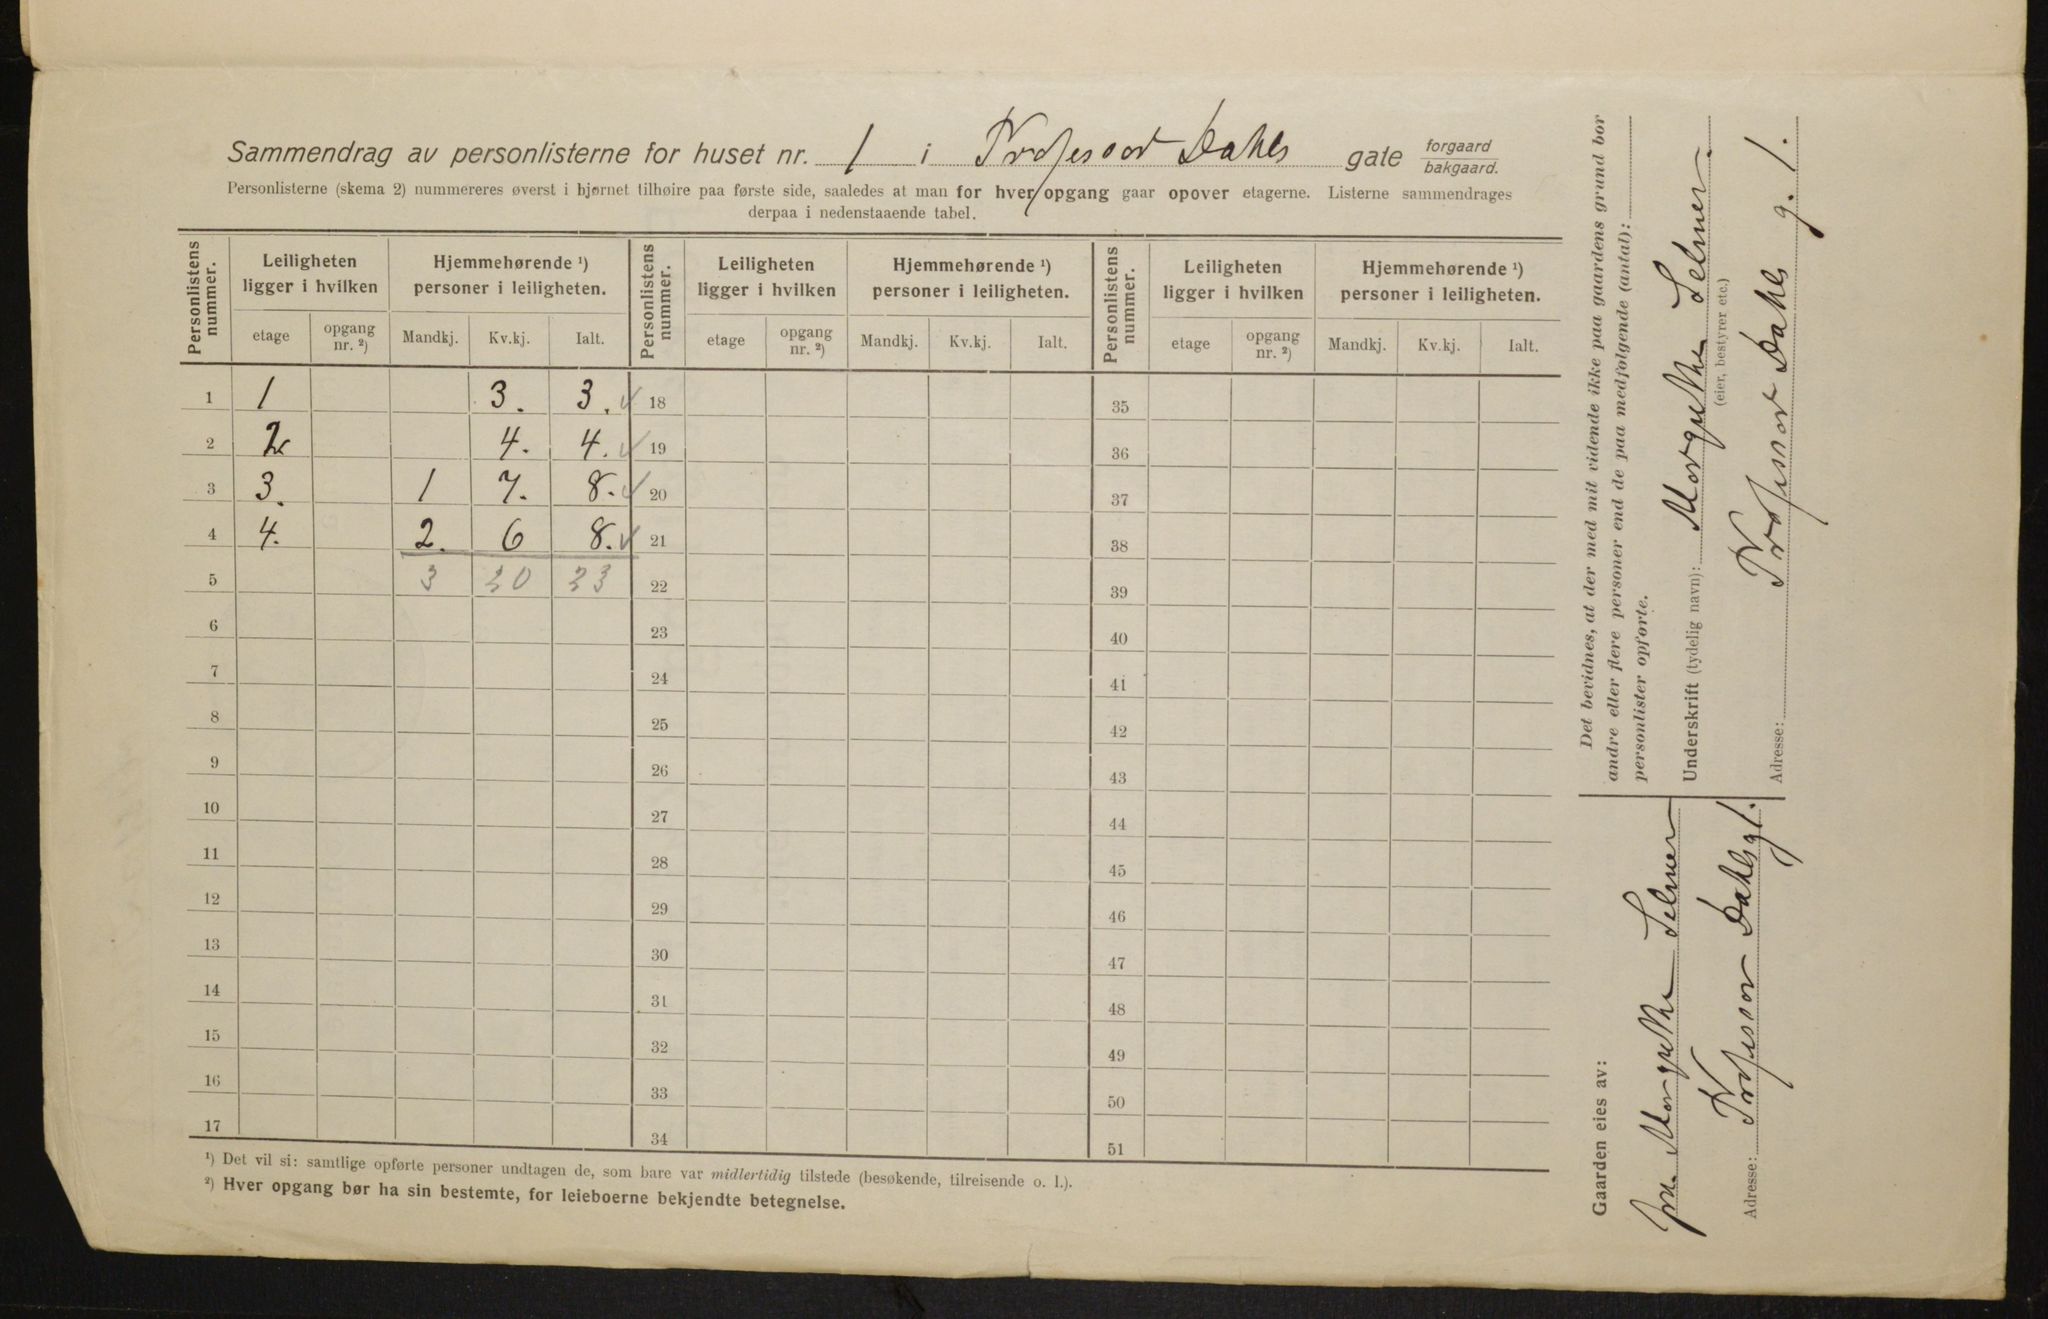 Sammendrag av personlisterne for huset nr. 1 i Professor Dahls gate forgaard bakgaard.
Personlisterne (skema 2) nummereres øverst i hjørnet tilhøire paa første side, saaledes at man for hver opgang gaar opover etagerne. Listerne sammendrages
derpaa i nedenstaaende tabel.
Personlistens nummer. Leiligheten ligger i hvilken Hjemmehørende ¹) personer i leiligheten. Personlistens nummer. Leiligheten ligger i hvilken Hjemmehørende ¹) personer i leiligheten. Personlistens nummer. Leiligheten ligger i hvilken Hjemmehørende ¹) personer i leiligheten.
etage opgang nr. ²) Mandkj. Kv.kj. Ialt. etage opgang nr. ²) Mandkj. Kv.kj. Ialt. etage opgang nr. ²) Mandkj. Kv.kj. Ialt.
1 1 3. 3. ✓ 18 35
2 2 4. 4. ✓ 19 36
3 3. 1 7. 8. ✓ 20 37
4 4. 2. 6 8. ✓ 21 38
5 3 20 23 22 39
6 23 40
7 24 41
8 25 42
9 26 43
10 27 44
11 28 45
12 29 46
13 30 47
14 31 48
15 32 49
16 33 50
17 34 51
¹) Det vil si: samtlige opførte personer undtagen de, som bare var midlertidig tilstede (besøkende, tilreisende o. l.).
²) Hver opgang bør ha sin bestemte, for leieboerne bekjendte betegnelse.
Det bevidnes, at der med mit vidende ikke paa gaardens grund bor
andre eller flere personer end de paa medfølgende (antal):
personlister opførte.
Underskrift (tydelig navn): Selmer.
(eier, bestyrer etc.)
Adresse: Professor Dahls g. 1.
Gaarden eies av:
Selmer
Adresse: Professor Dahlsg 1.